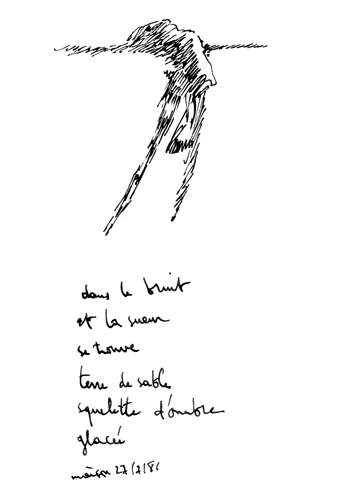 dans le bruit
et la sueur
se trouve
terre de sable
squelette d'ombre
glacée
maison 27/7/81